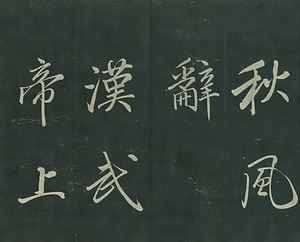 秋風
辭
漢武
帝上